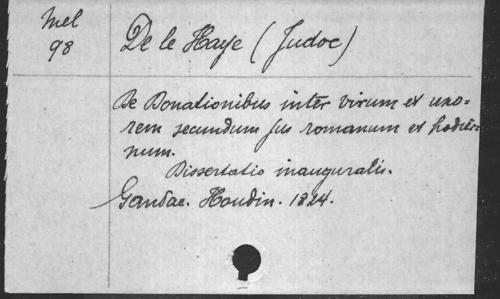 Mel
98
De le Haye (Judoc)
De Donationibus inter virum et uxo=
rem secundum jus romanum et hodier=
num.
Dissertatio inauguralis.
Gandae. Houdin. 1824.